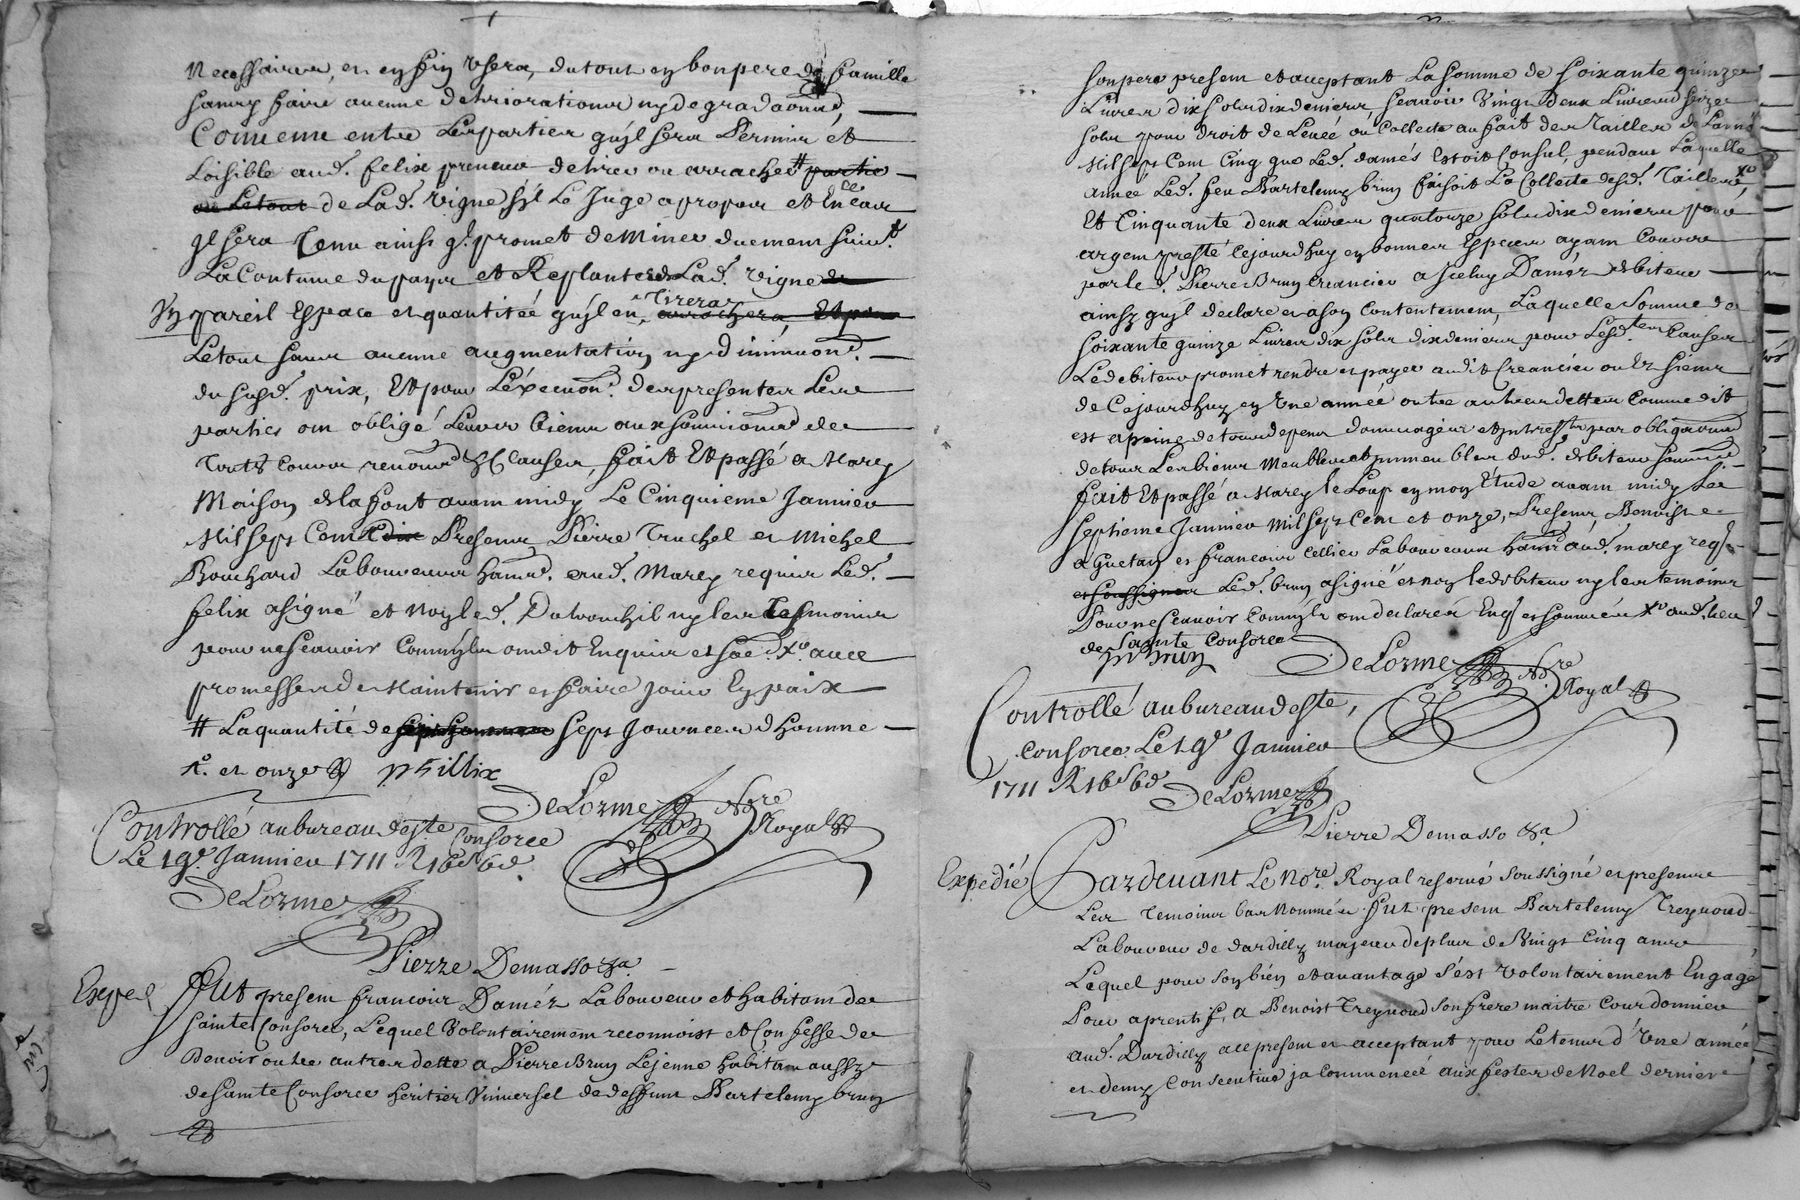 Necessaires, et en fin Usera, du tout en bon pere de famille
sans y faire aucune deteriorations ny degradaons,
Convenu entre Les parties quyl sera Permis et
Loisible aud. felix preneur de tirer ou arracher # partie
ou Le tout de Lad. Vigne syl Le Juge a propos et En ce cas
yl sera Tenu ainsy ql. promet de Miner duement suivt.
La Coutume du pays et Replanter Lad. Vigne de
Un pareil Espace et quantitée quyl en Tirera arrachera, Et pour
Le tout sans aucune augmentation ny diminuon.
du susd. prix, Et pour L'éxecuon. des presentes Les
parties ont obligé Leurs biens aux soumissions de
Touts Cours, renons. & Clauses, fait Et passé a Marcy
Maison de la font avant midy Le Cinquieme Janvier
Mil sept Cent dix Presents Pierre Truchel et Michel
Bouchard Laboureurs hants. aud. Marcy requis Led.
felix a signé et Non led. Dutronchil ny les Tesmoins
pour ne scavoir Comm'yls ont dit Enquis et soe. Xo. avec
promesses de Maintenir et faire Jouir En paix
# La quantité de sept hommes sept Journees d homme
Xo. et onze P fillix
DeLorme Nore Royal
Controllé au bureau de ste Consorce
Le 19e. Janvier 1711 R 16s 6d.
DeLorme
Pierre Demasso &a
Exped
Fut present francois Daméz Laboureur et habitant de
Sainte Consorce, Lequel Volontairement reconnoist et Confesse de
Devoir outre autres dette a Pierre Brun Le jeune habitant aussy
de Sainte Consorce héritier Universel de deffunt Bartelemy brun
son pere present et acceptant La somme de soixante quinze
Livres dix sols dix deniers scavoir Vingt deux Livres seize
sols pour droit de Levée ou Collecte au fait des Tailles de L'anné
Mil sept Cent Cinq que Led. damés Estoit Consul, pendant Laquelle
année Led. feu Bartelemy brun faisoit La Collecte desd. Tailles, Xo
Et Cinquante deux Livres quatorze sols dix deniers pour
argent presté Cejourdhuy en bonnes Especes ayant Cours
par led. Pierre Brun Creancier a Iceluy Daméz debiteur
ainsy quyl declare et a son Contentement, Laquelle Somme de
soixante quinze Livres dix sols dix deniers pour Lesd. Causes
Le debiteur promet rendre et payer audit Creancier ou Ez siens
de Cejourdhuy en Une année outre autres dettes Comme dit
est a peine de tous depens dommages et Intrests par obligaons
de tous Les biens Meubles et immeubles dud. debiteur soumions
fait Et passé a Marcy le Loup en mon Etude avant midy Le
septieme Janvier Mil sept Cent et onze, Presents, Benoist
a Guetan et francois Cellier Laboureurs hants aud. marcy reqs
et soussignes Led. brun a signé et non le debiteur ny les temoins
Pour ne Scavoir Comm'yls ont declarés Enqs et sommés Xo aud. lieu
de Sainte Consorce
P Brun
DeLorme Nore Royal
Controllé au bureau de ste,
Consorce Le 19e Janvier
1711 R 16s 6d
DeLorme
Pierre Demasso &a
Expédié
Pardevant Le Nore. Royal reservé soussigné et presents
Les Temoins bas Nommés Fut present Bartelemy Treynoud
Laboureur de dardilly majeur de plus de Vingt Cinq ans
Lequel pour son bien et avantage s'ést Volontairement Engagé
Pour aprentif, a Benoist Treynoud son frere maitre Courdonnier
aud. Dardilly a ce present et acceptant pour Le temps d'Une année
et demy Consecutive ja Commencée aux festes de Noel derniere